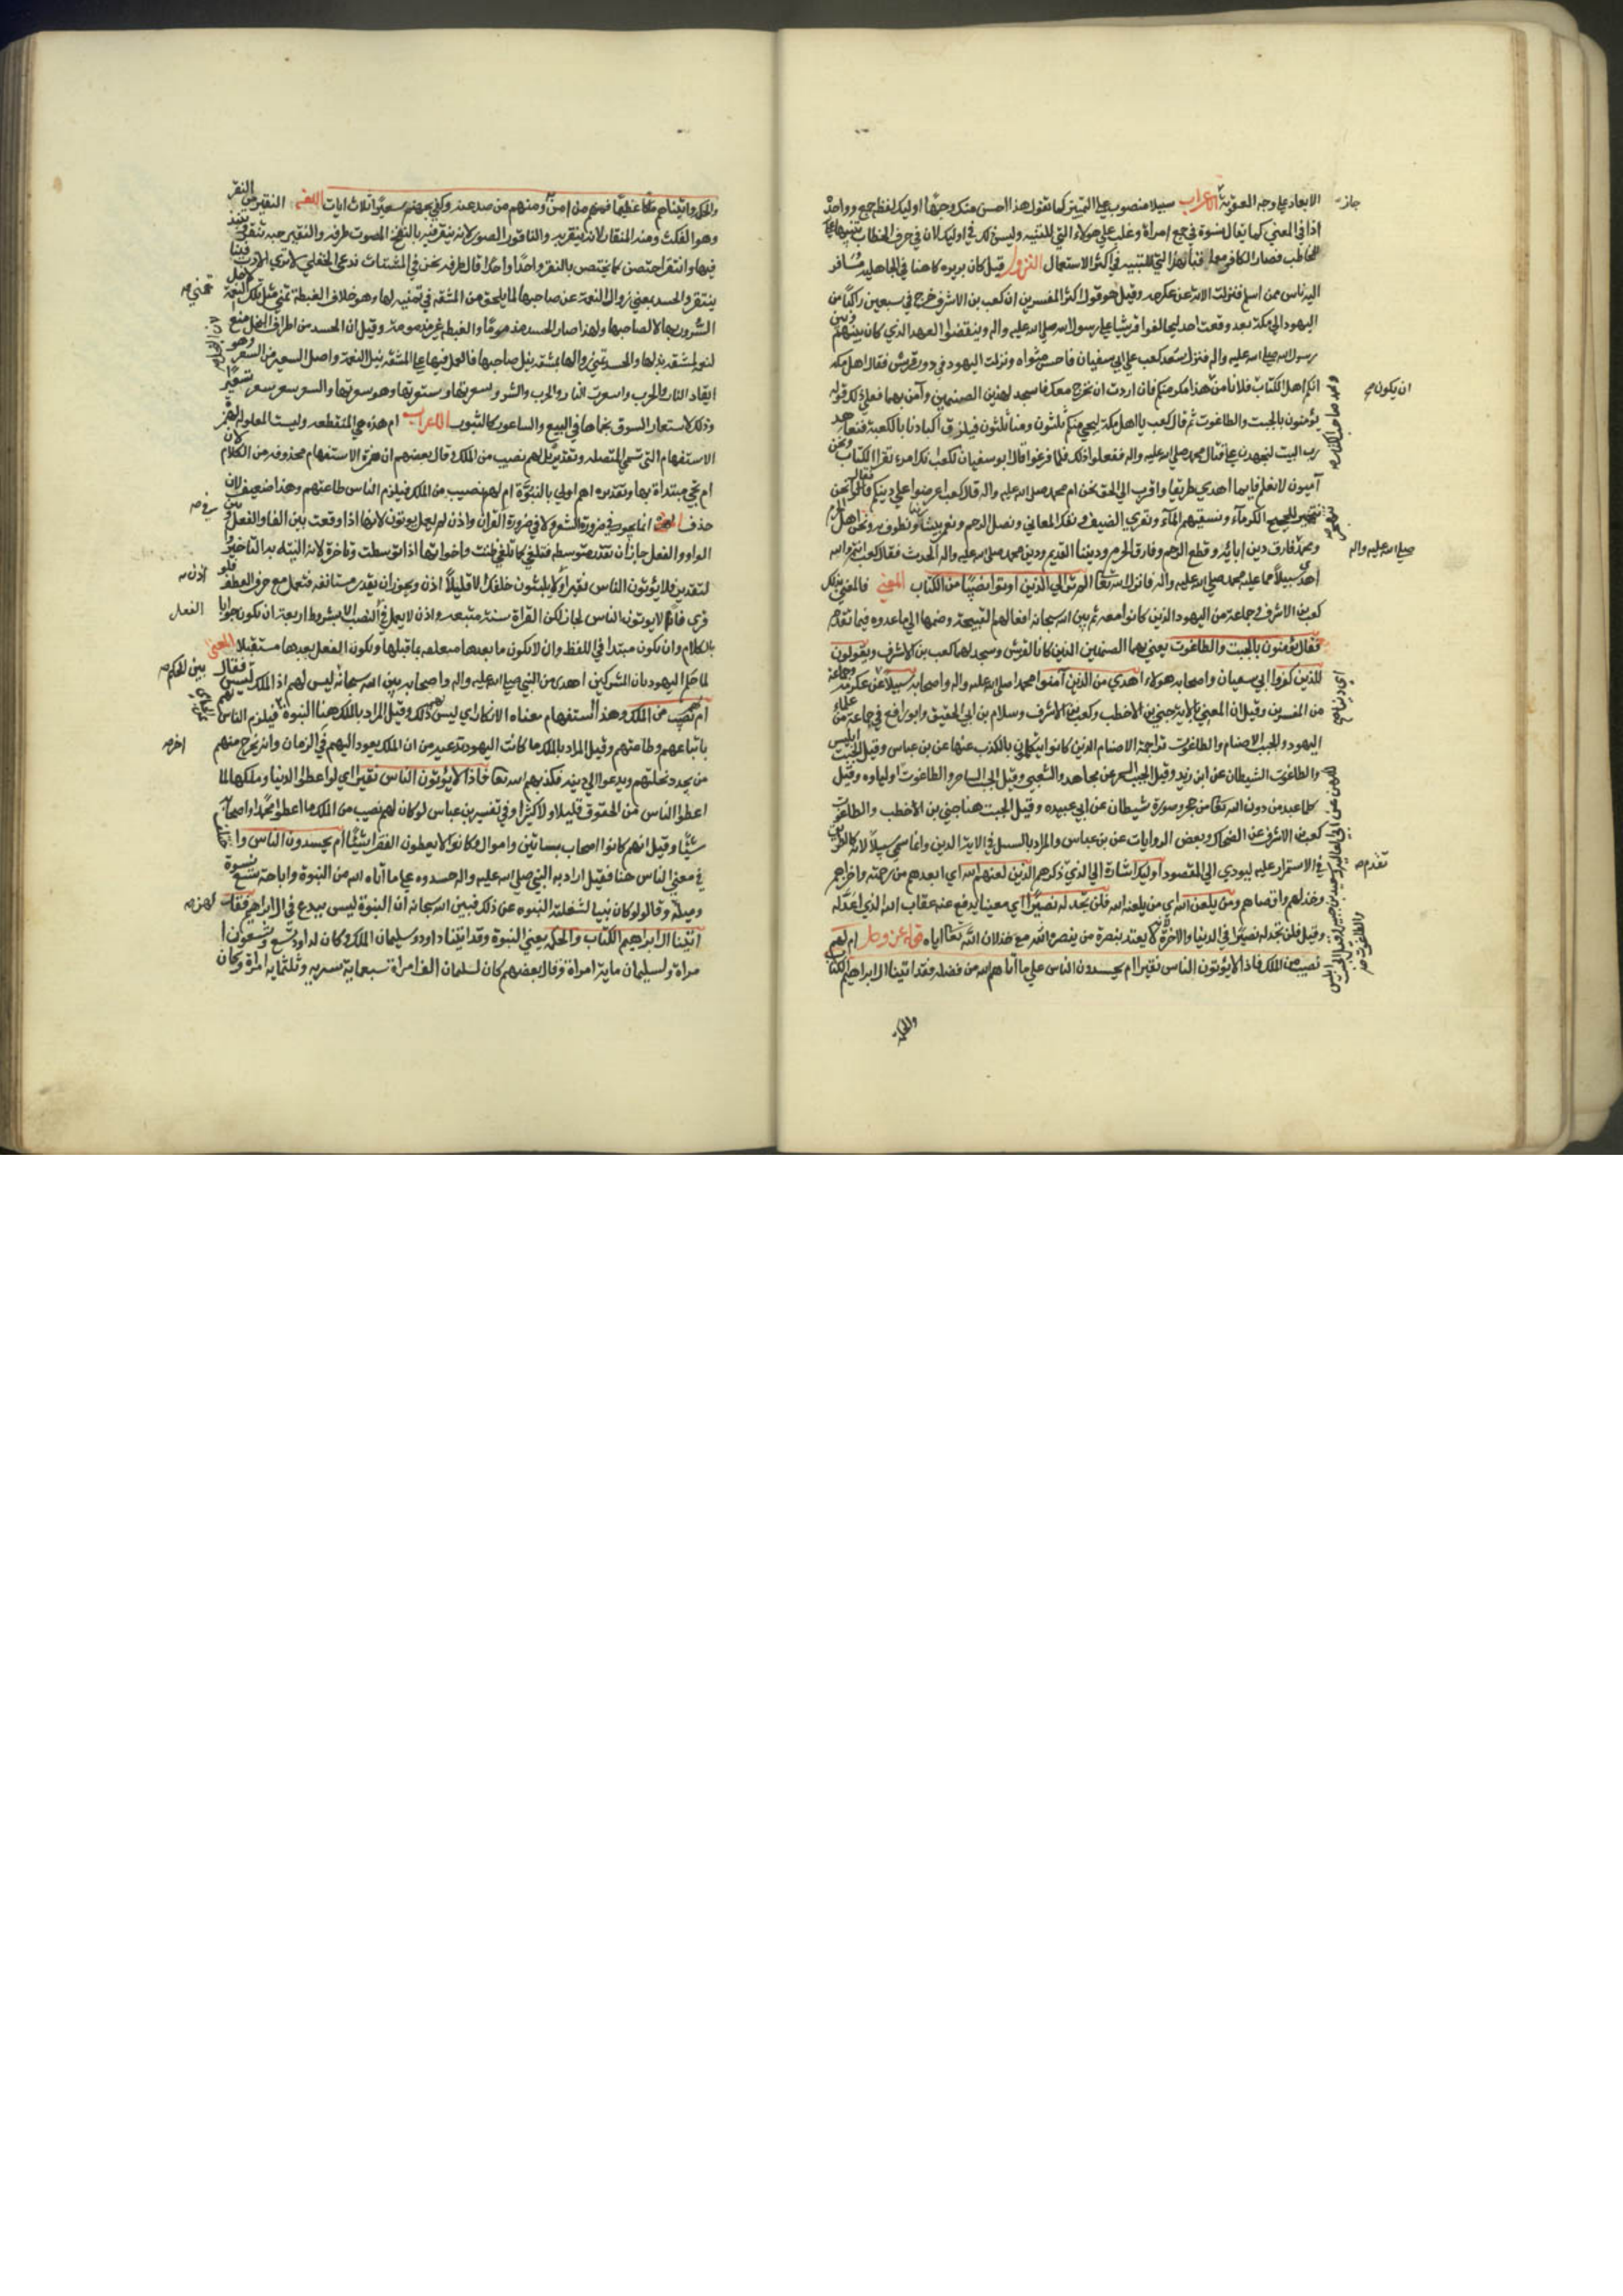 الابعاد علی وجه العقوبة الاعراب سبيلا منصوب علی التمييز كما تقول هذا احسن منك وجهًا اوليك لفظ جمع وواحدٌ
اذا في المعني كما يقال نسوة في جمع امراة وغلب علي هولاء التي للتنبيه وليس ذلك في اوليك لان في حرف الخطاب تنبيها علی
المخاطب فصار الكافر معها النزول قيل كان بريره كاهنا في الجاهليه مسافر
اليه ناس ممن اسلم فنزلت الاية عن عكرمه وقيل هو قول اكثر المفسرين ان كعب بن الاشرف خرج في سبعين راكبًا من
اليهود الي مكة بعد وقعت احد ليحالفوا قريشا علی رسول الله صلی الله عليه واله وينقضوا العهد الذي كان بينهم وبين
رسول الله صلی الله عليه واله فنزل كعب علی ابي سفيان فاحسن مثواه ونزلت اليهود في دور قريش فقال اهل مكه
انكم اهل الكتاب فلا نامن هذا مكر منكم فان اردت ان نخرج معك فاسجد لهذين الصنمين وآمن بهما ففعل فذلك قوله
يؤمنون بالجبت والطاغوت ثم قال كعب يا اهل مكة ليجي منكم ثلثون ومنا ثلثون فيلزق اكبادنا بالكعبة فنعاهد
رب البيت لنجهدن علی قتال محمد صلی الله عليه واله ففعلوا ذلك فلما فرغوا قال ابو سفيان لكعب انك امرء تقرا الكتاب ونحن
آميون لا نعلم فاينا اهدي طريقا واقرب الي الحق نحن ام محمد صلی الله عليه واله قال كعب اعرضوا علي دينكم فقال نحن
ننحر للحجيج الكرمآء ونسقيهم المآء ونقري الضيف ونفك العاني ونصل الرحم ونعمر بيت ربنا ونطوف به ونحن اهل الحرم
ومحمد فارق دين ابائه وقطع الرحم وفارق الحرم وديننا القديم ودين محمد صلی الله عليه واله الحديث فقال كعب انتم والله
اهدی سبيلاً مما عليه محمد صلی الله عليه واله فانزل الله تعا الم تر الي الذين اوتوا نصيبًا من الكتاب المعني فالمعني بذلك
كعب بن الاشرف وجماعة من اليهود الذين كانوا معه ثم بين الله سبحانه افعالهم القبيحة وضمها الي ما عدده فيما تقدم
فقال يؤمنون بالجبت والطاغوت يعني بهما الصنمين الذين كانا لقريش وسجد لهما كعب بن الاشرف ويقولون
للذين كفروا ابي سفيان واصحابه هولاء اهدي من الذين آمنوا محمد صلی الله عليه واله واصحابه سبيلا عن عكرمه وجماعة
من المفسرين وقيل ان المعني بالاية حيي بن الاخطب وكعب بن الاشرف وسلام بن ابي الحقيق وابو رافع في جماعة من علماء
اليهود والجبت الاصنام والطاغوت تراجمة الاصنام الذين كانوا يتكلمون بالكذب عنها عن بن عباس وقيل الجبت ابليس
والطاغوت الشيطان عن ابن زيد وقيل الجبت السحر عن مجاهد والشعبي وقيل الجبت الساحر والطاغوت اولياوه وقيل
كلما عبد من دون الله تعا من حجر وصورة شيطان عن ابي عبيده وقيل الجبت هنا حيي بن الاخطب والطاغوت
كعب بن الاشرف عن الضحاك وبعض الروايات عن بن عباس والمراد بالسبيل في الاية الدين وانما سمي سبيلاً لانه كالطريق
في الاستمرار عليه ليودي الي المقصود اوليك اشارة الي الذي ذكرهم الذين لعنهم الله اي ابعدهم من رحمته واخزاهم
وخذلهم واقصاهم ومن يلعن الله اي من يلعنه الله فلن تجد له نصيرًا اي معينا يدفع عنه عقاب الله الذي اعدّ له
وقيل فلن تجد له نصيرًا في الدنيا والاخرة لانه لا يعتد بنصرة من ينصره الله مع خذلان الله تعا اياه قوله عز وجل ام لهم
نصيب من الملك فاذا لا يؤتون الناس نقيرا ام يحسدون الناس علی ما آتاهم الله من فضله فقد آتينا ال ابراهيم الكتاب
والحكمة
جازت
ان يكون
صلی الله عليه واله
تقدم
والحكمة وآتيناهم ملكا عظيمًا فمنهم من امن به ومنهم من صد عنه وكفي بجهنم سعيرًا ثلاث ايات اللغة النقير من النقر
وهو النكت ومنه المنقار لانه ينقر به والناقور الصور لانه ينقر فيه بالنفخ المصوت والنقير حبه تنقر
فيها وانتقر اختص كما يختص بالنقر واحدًا واحدًا قال طرفه نحن في المشتات ندعی الجفلي لا تري الآدب فينا
ينتقر والحسد تمني زوال النعمة عن صاحبها لما يلحق من المشقه في تمنيه لها وهو خلاف الغبطة تمني مثل تلك النعمة لاجل
السرور بها لا لصاحبها ولهذا صار الحسد مذمومًا والغبطه غير مذمومة وقيل ان الحسد من افراط البخل منع
النعمة لمشقه بذلها والحسد تمني زوالها لمشقة نيل صاحبها فالعمل فيها علی المشقه بنيل النعمة واصل السعير من السعر وهو
ايقاد النار والحرب واسعرت النار والحرب والشر وسعرتها وهو سعرتها والسعر سعر
وذلك لاستعار السوق بحماها في البيع والساعور كالتنور الاعراب ام هذه هي المنقطعه وليست المعادلة لهمزة
الاستفهام التي تسمي المتصله وتقديره بل لهم نصيب من الملك وقال بعضهم ان همزة الاستفهام محذوفه من الكلام لان
ام تجي مبتداة بها وتقديره اهم اولي بالنبوّة ام لهم نصيب من الملك فيلزم الناس طاعتهم وهذا ضعيف لان
حذف الهمزة انما يجوز في ضرورة الشعر ولا ضرورة في القرآن واذن لم يعمل يوتون لانها اذا وقعت بين الفا والفعل
الواو والفعل جاز ان تقدر متوسطه فتلغي كما تلغي ظننت واخواتها اذا توسطت وتاخرة لان النيّه به التاخير
لتقدير فلا يؤتون الناس نقيرا او لا يلبثون خلفك الا قليلاً اذن ويجوز ان يقدر مستانفه فتعمل مع حرف العطف فلو
قري فاذا لا يوتون الناس لجاز لكن القراة سنة متبعه واذن لا يعمل في الفعل النصب الا بشروط اربعة ان تكون جوابا
بالكلام وان تكون مبتدا في اللفظ وان لا يكون ما بعدها متعلقه بما قبلها ويكون الفعل بعدها مستقبلا المعنی
لما حكم اليهود بان المشركين اهدی من النبي صلی الله عليه واله واصحابه بين الله سبحانه ليس لهم اذا الملك فقال ليس
ام لهم نصيب من الملك وهذا استفهام معناه الانكار اي ليس لهم ذلك وقيل المراد بالملك هنا النبوة فيلزم الناس
باتباعهم وطاعتهم وقيل المراد بالملك ما كانت اليهود تدعيه من ان الملك يعود اليهم في الزمان وانه يخرج منهم
من يجدد نحلتهم ويدعوا الي دينه فكذبهم الله تعا فاذا لا يؤتون الناس نقيرا اي لو اعطوا الدنيا وملكها لما
اعطوا الناس من الحقوق قليلا ولا كثيرًا وفي تفسير بن عباس لو كان لهم نصيب من الملك ما اعطوا محمدًا واصحابه
شيئًا وقيل انهم كانوا اصحاب بساتين واموال وكانوا لا يعطون الفقرا شيئًا ام يحسدون الناس
في معني الناس هنا فقيل اراد به النبي صلی الله عليه واله حسدوه علی ما آتاه الله من النبوة واباحة تسع نسوة
وميله وقالوا لو كان نبيا لشغلته النبوه عن ذلك فبين الله سبحانه ان النبوة ليس ببدع في ال ابراهيم فقال
آتينا ال ابراهيم الكتاب والحكمة يعني النبوة وقد اتينا داود وسليمان الملك وكان لداود تسع وتسعون ا
مراة ولسليمان ماية امراة وقال بعضهم كان لسليمان الف امراة سبعماية سريه وثلثماية امراة وكان
تمني
اذن
الفعل
بين الحكم
اخر